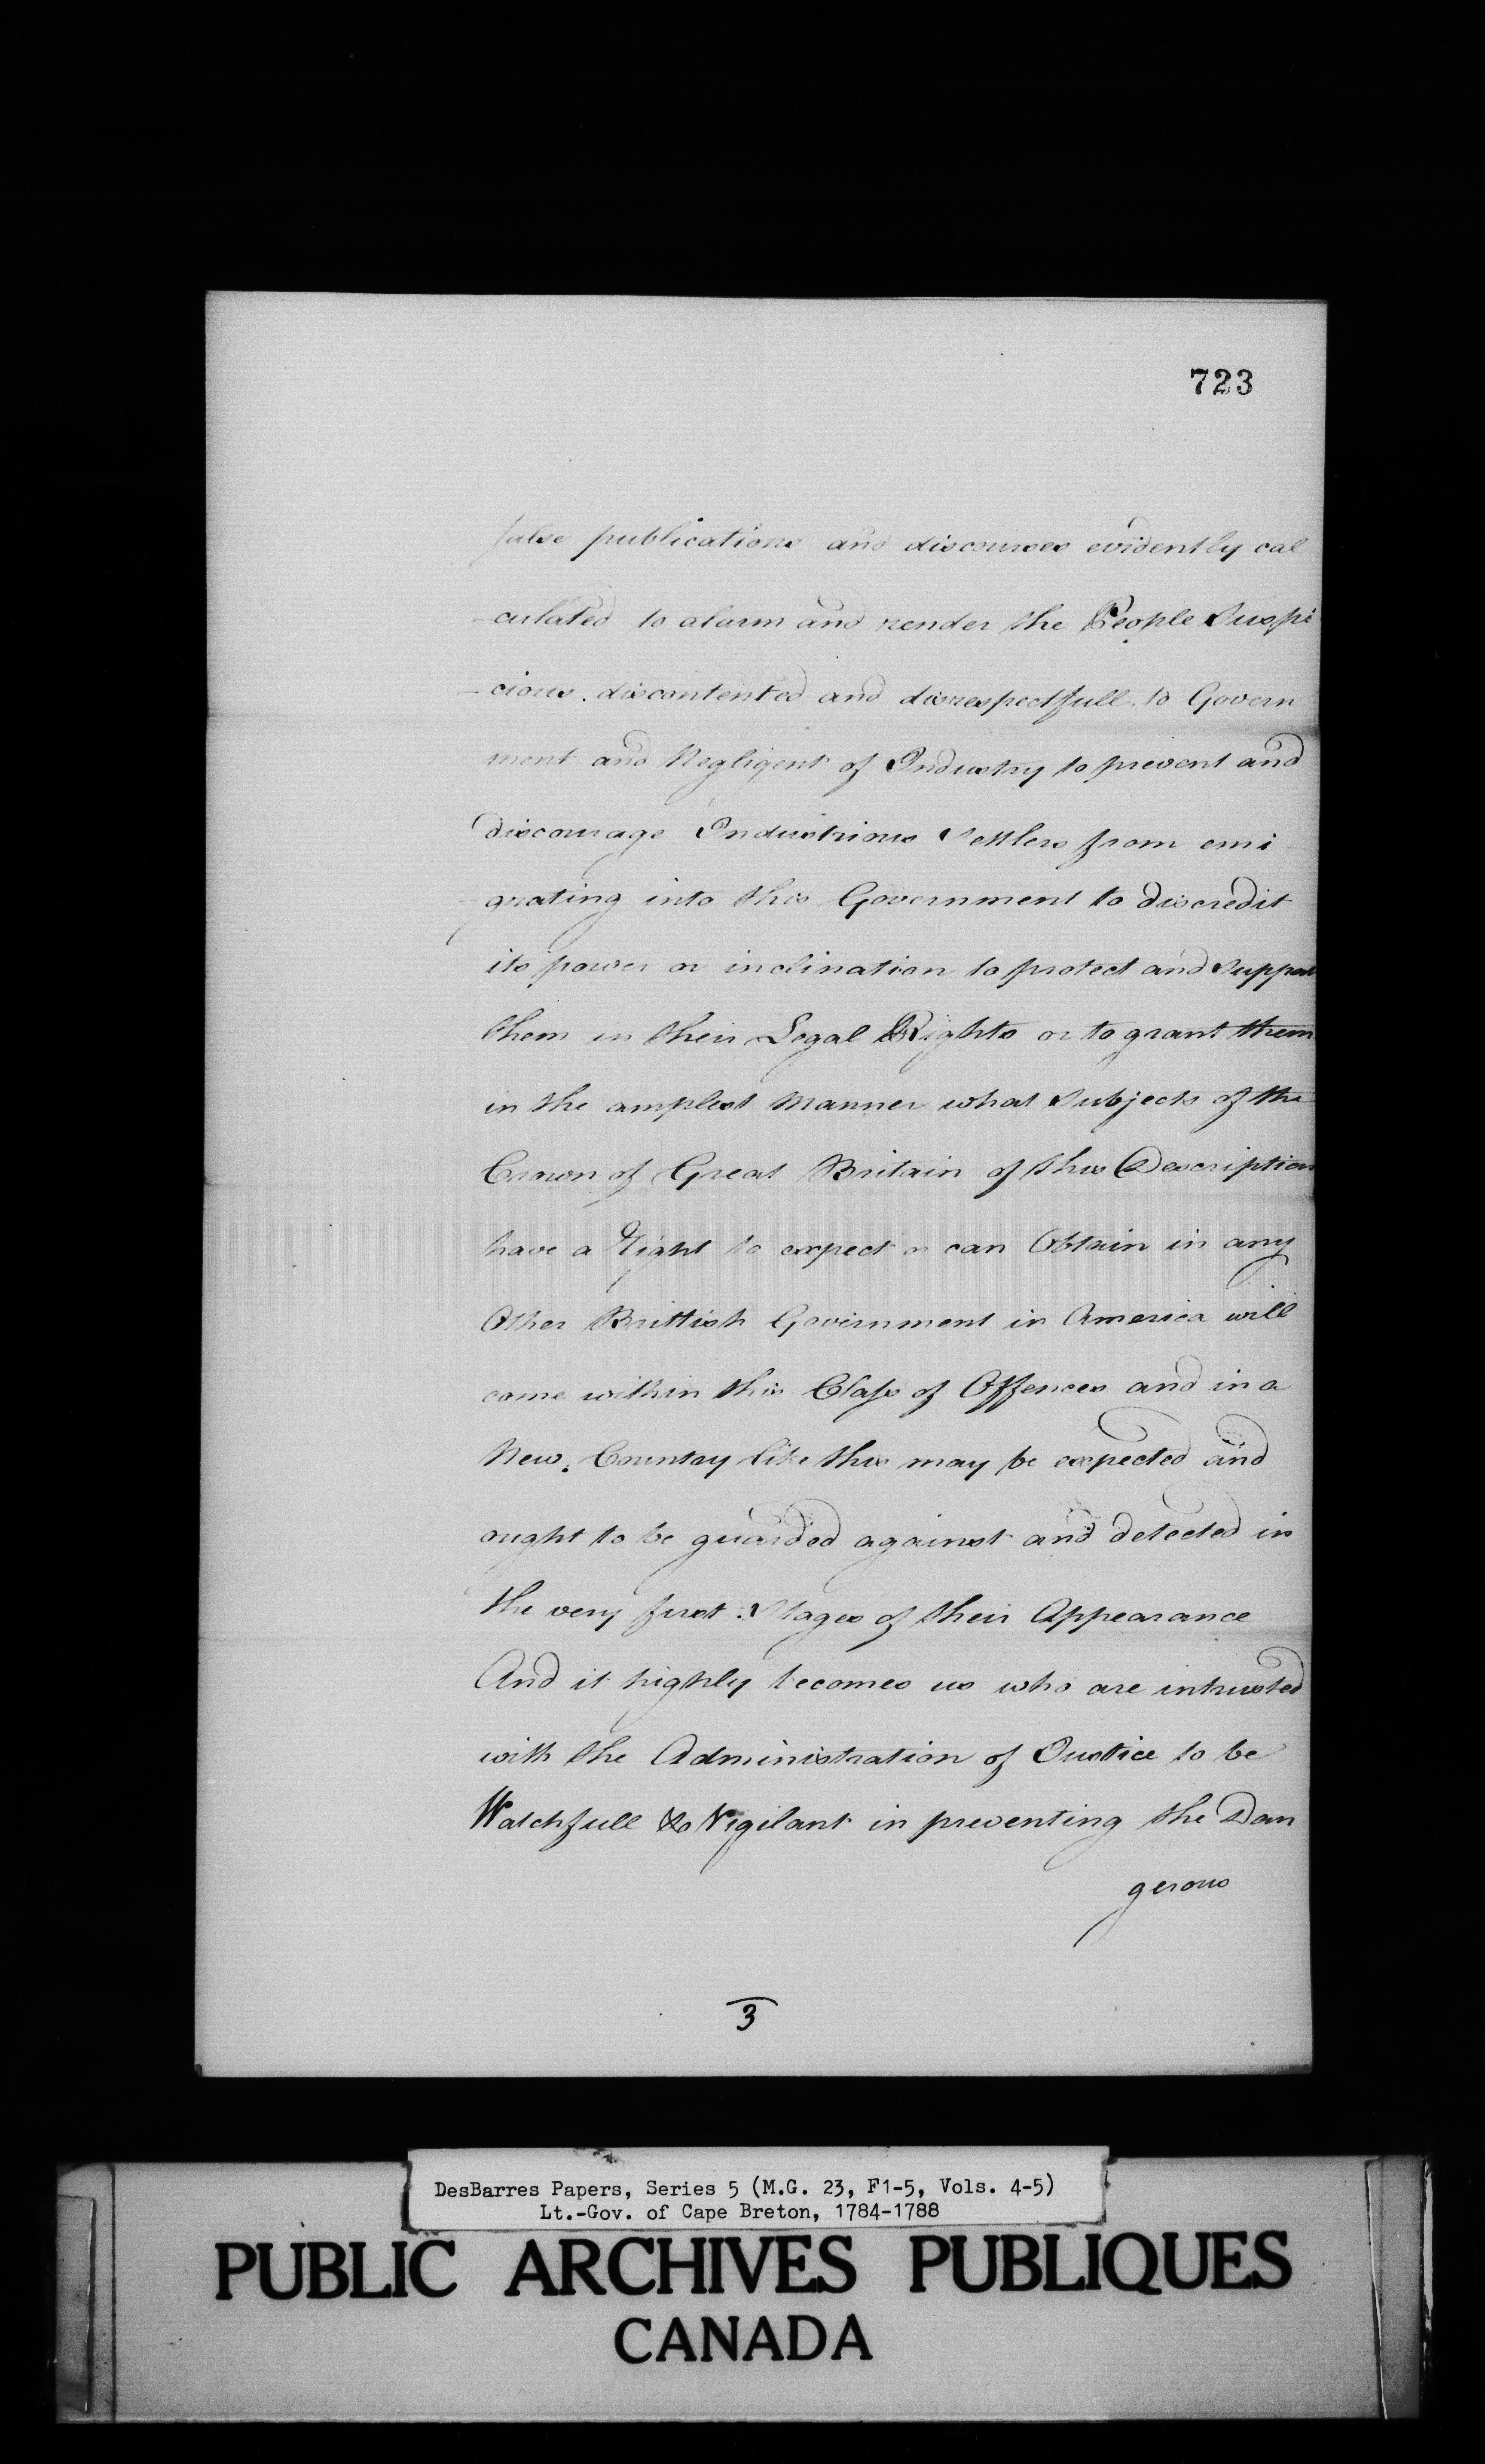 723
false publications and discourses evidently cal
-culated to alarm and render the People Suspi
-cious. discontented and disrespectfull. to Govern
ment and Negligent of Industry to prevent and
discourage Industrious Settlers from emi-
-grating into this Government to discredit
its power or inclination to protect and Support
them in their Legal Rights or to grant them
in the amplest Manner what Subjects of the
Crown of Great Britain of this Description
have a Right to expect or can Obtain in any
Other Brittish Government in America will
come within this Class of Offences and in a
New. Country like this may be expected and
ought to be guarded against and detected in
the very first Stages of their Appearance
And it highly becomes us who are intrusted
with the Administration of Justice to be
Watchfull & Vigilant in preventing the Dan
gerous
3
DesBarres Papers, Series 5 (M.G. 23, F1-5, Vols. 4-5)
Lt.-Gov. of Cape Breton, 1784-1788
PUBLIC ARCHIVES PUBLIQUES
CANADA